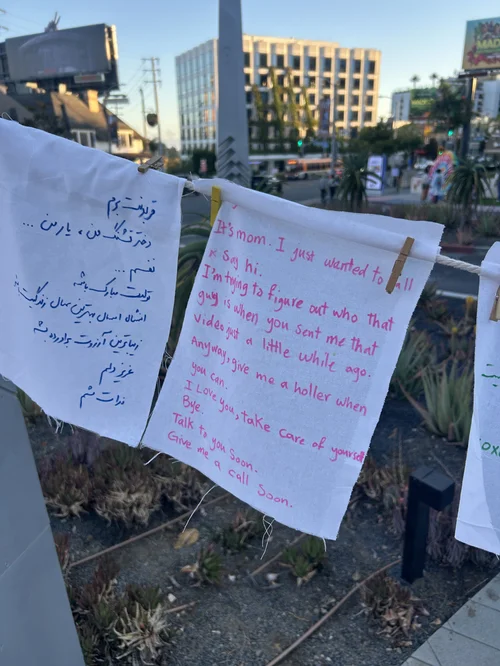 قربونت برم
دختر قشنگ من، یار من ...
نفسم ...
تولدت مبارک باشه
انشاله امسال بهترین سال زندگیت باشه
زیباترین آرزوت برآورده بشه
عزیز دلم
فدات بشم
It's mom. I just wanted to call
& Say hi.
I'm trying to figure out who that
guy is when you sent me that
video just a little while ago.
Anyway, give me a holler when
you can.
I Love you, take care of yourself
Bye.
Talk to you soon.
Give me a call Soon.